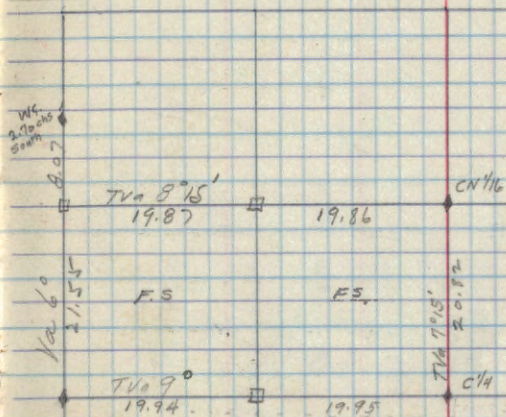 WC.
2.70 chs
South
8.07
TVa 8°15'
19.87
19.86
CN 1/16
Va 6°
21.55
F.S
F.S.
TVa 7°15'
20.82
TVa 9°
19.94
19.95
C 1/4